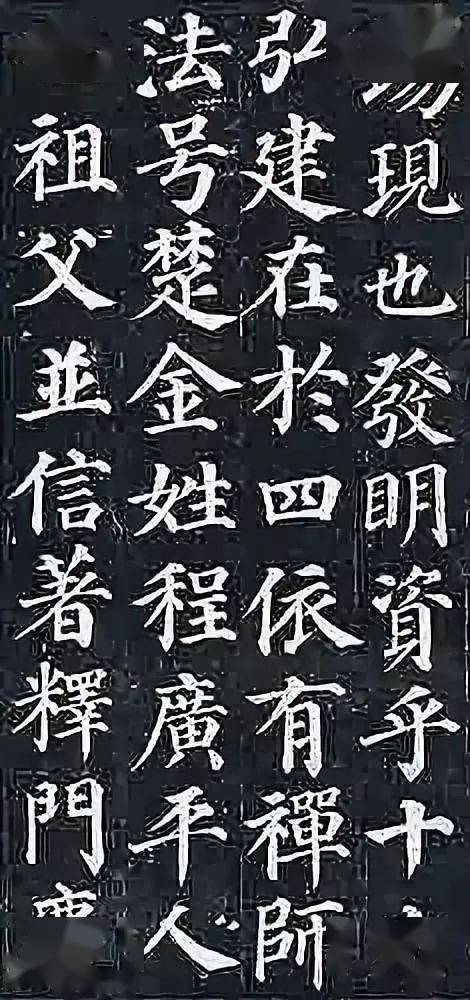 現也發明資乎十
弘建在於四依有禪師
法号楚金姓程廣平人
祖父並信著釋門